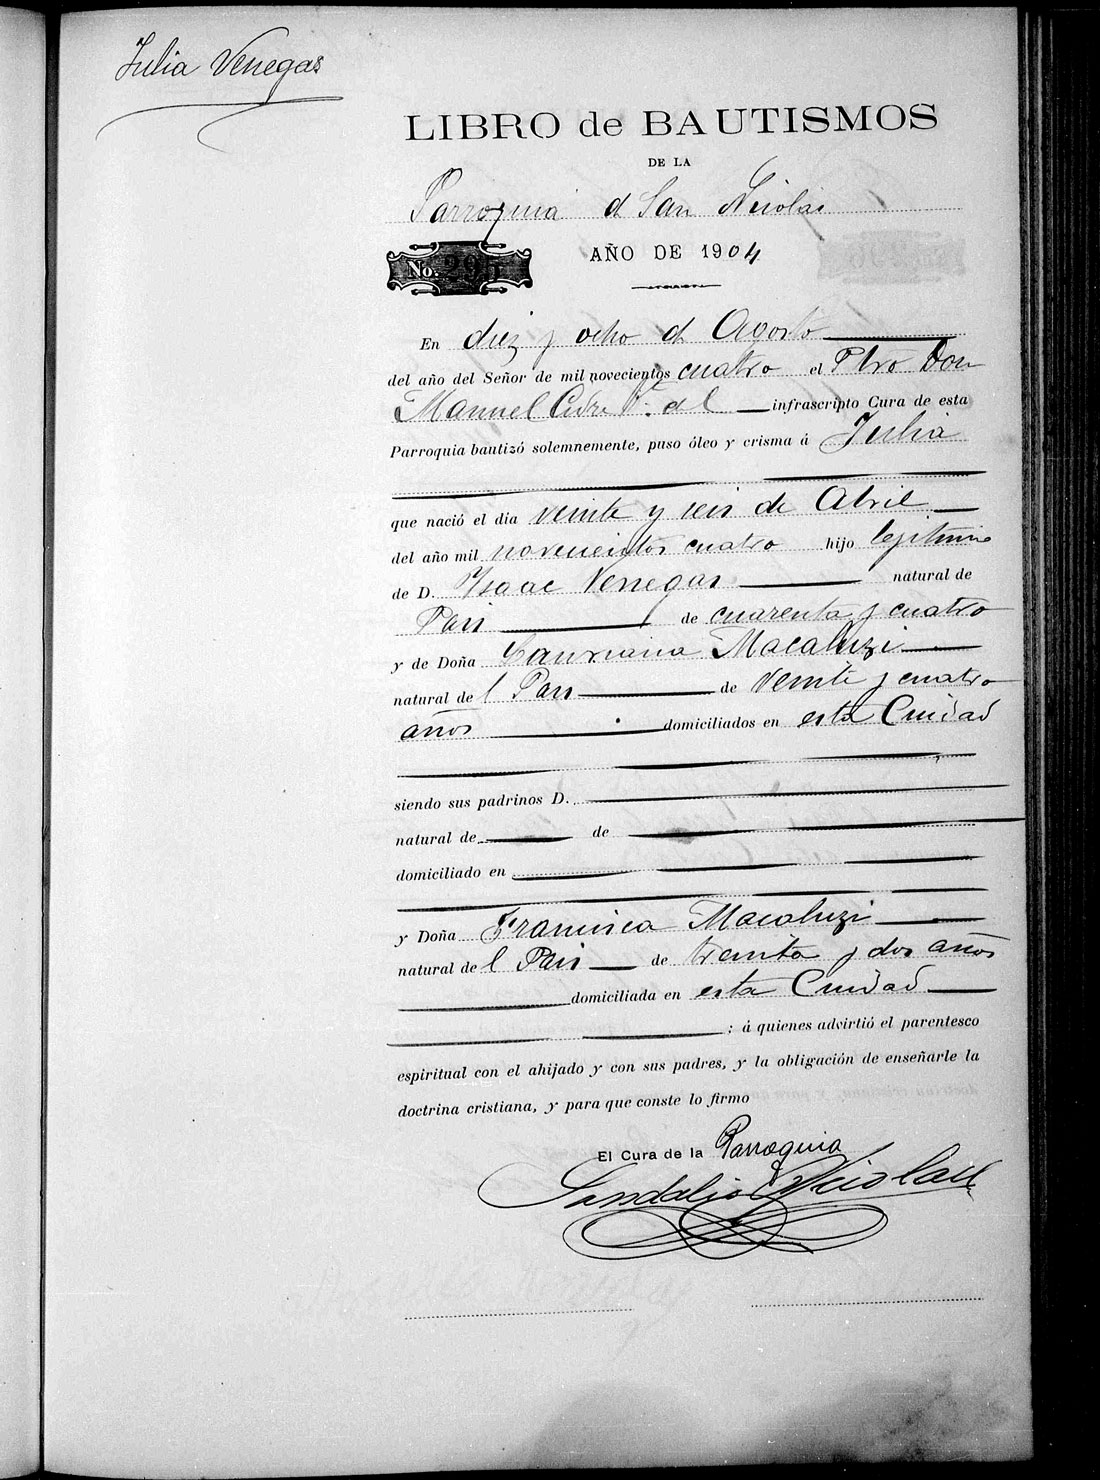 Julia Venegas
LIBRO de BAUTISMOS
DE LA
Parroquia d San Nicolas
No. 295
AÑO DE 1904
En diez y ocho d Agosto
del año del Señor de mil novecientos cuatro el Pbro Don
Manuel infrascripto Cura de esta
Parroquia bautizó solemnemente, puso óleo y crisma á Julia
que nació el día veinte y seis de Abril
del año mil novecientos cuatro hijo legítimo
de D. Isaac Venegas natural de
Pais de cuarenta y cuatro
y de Doña Macaluzi
natural del Pais de veinte y cuatro
años domiciliados en esta Ciudad
siendo sus padrinos D.
natural de de
domiciliado en
y Doña Francisca Macaluzi
natural del Pais de treinta y dos años
domiciliada en esta Ciudad
; á quienes advirtió el parentesco
espiritual con el ahijado y con sus padres, y la obligación de enseñarle la
doctrina cristiana, y para que conste lo firmo
El Cura de la Parroquia